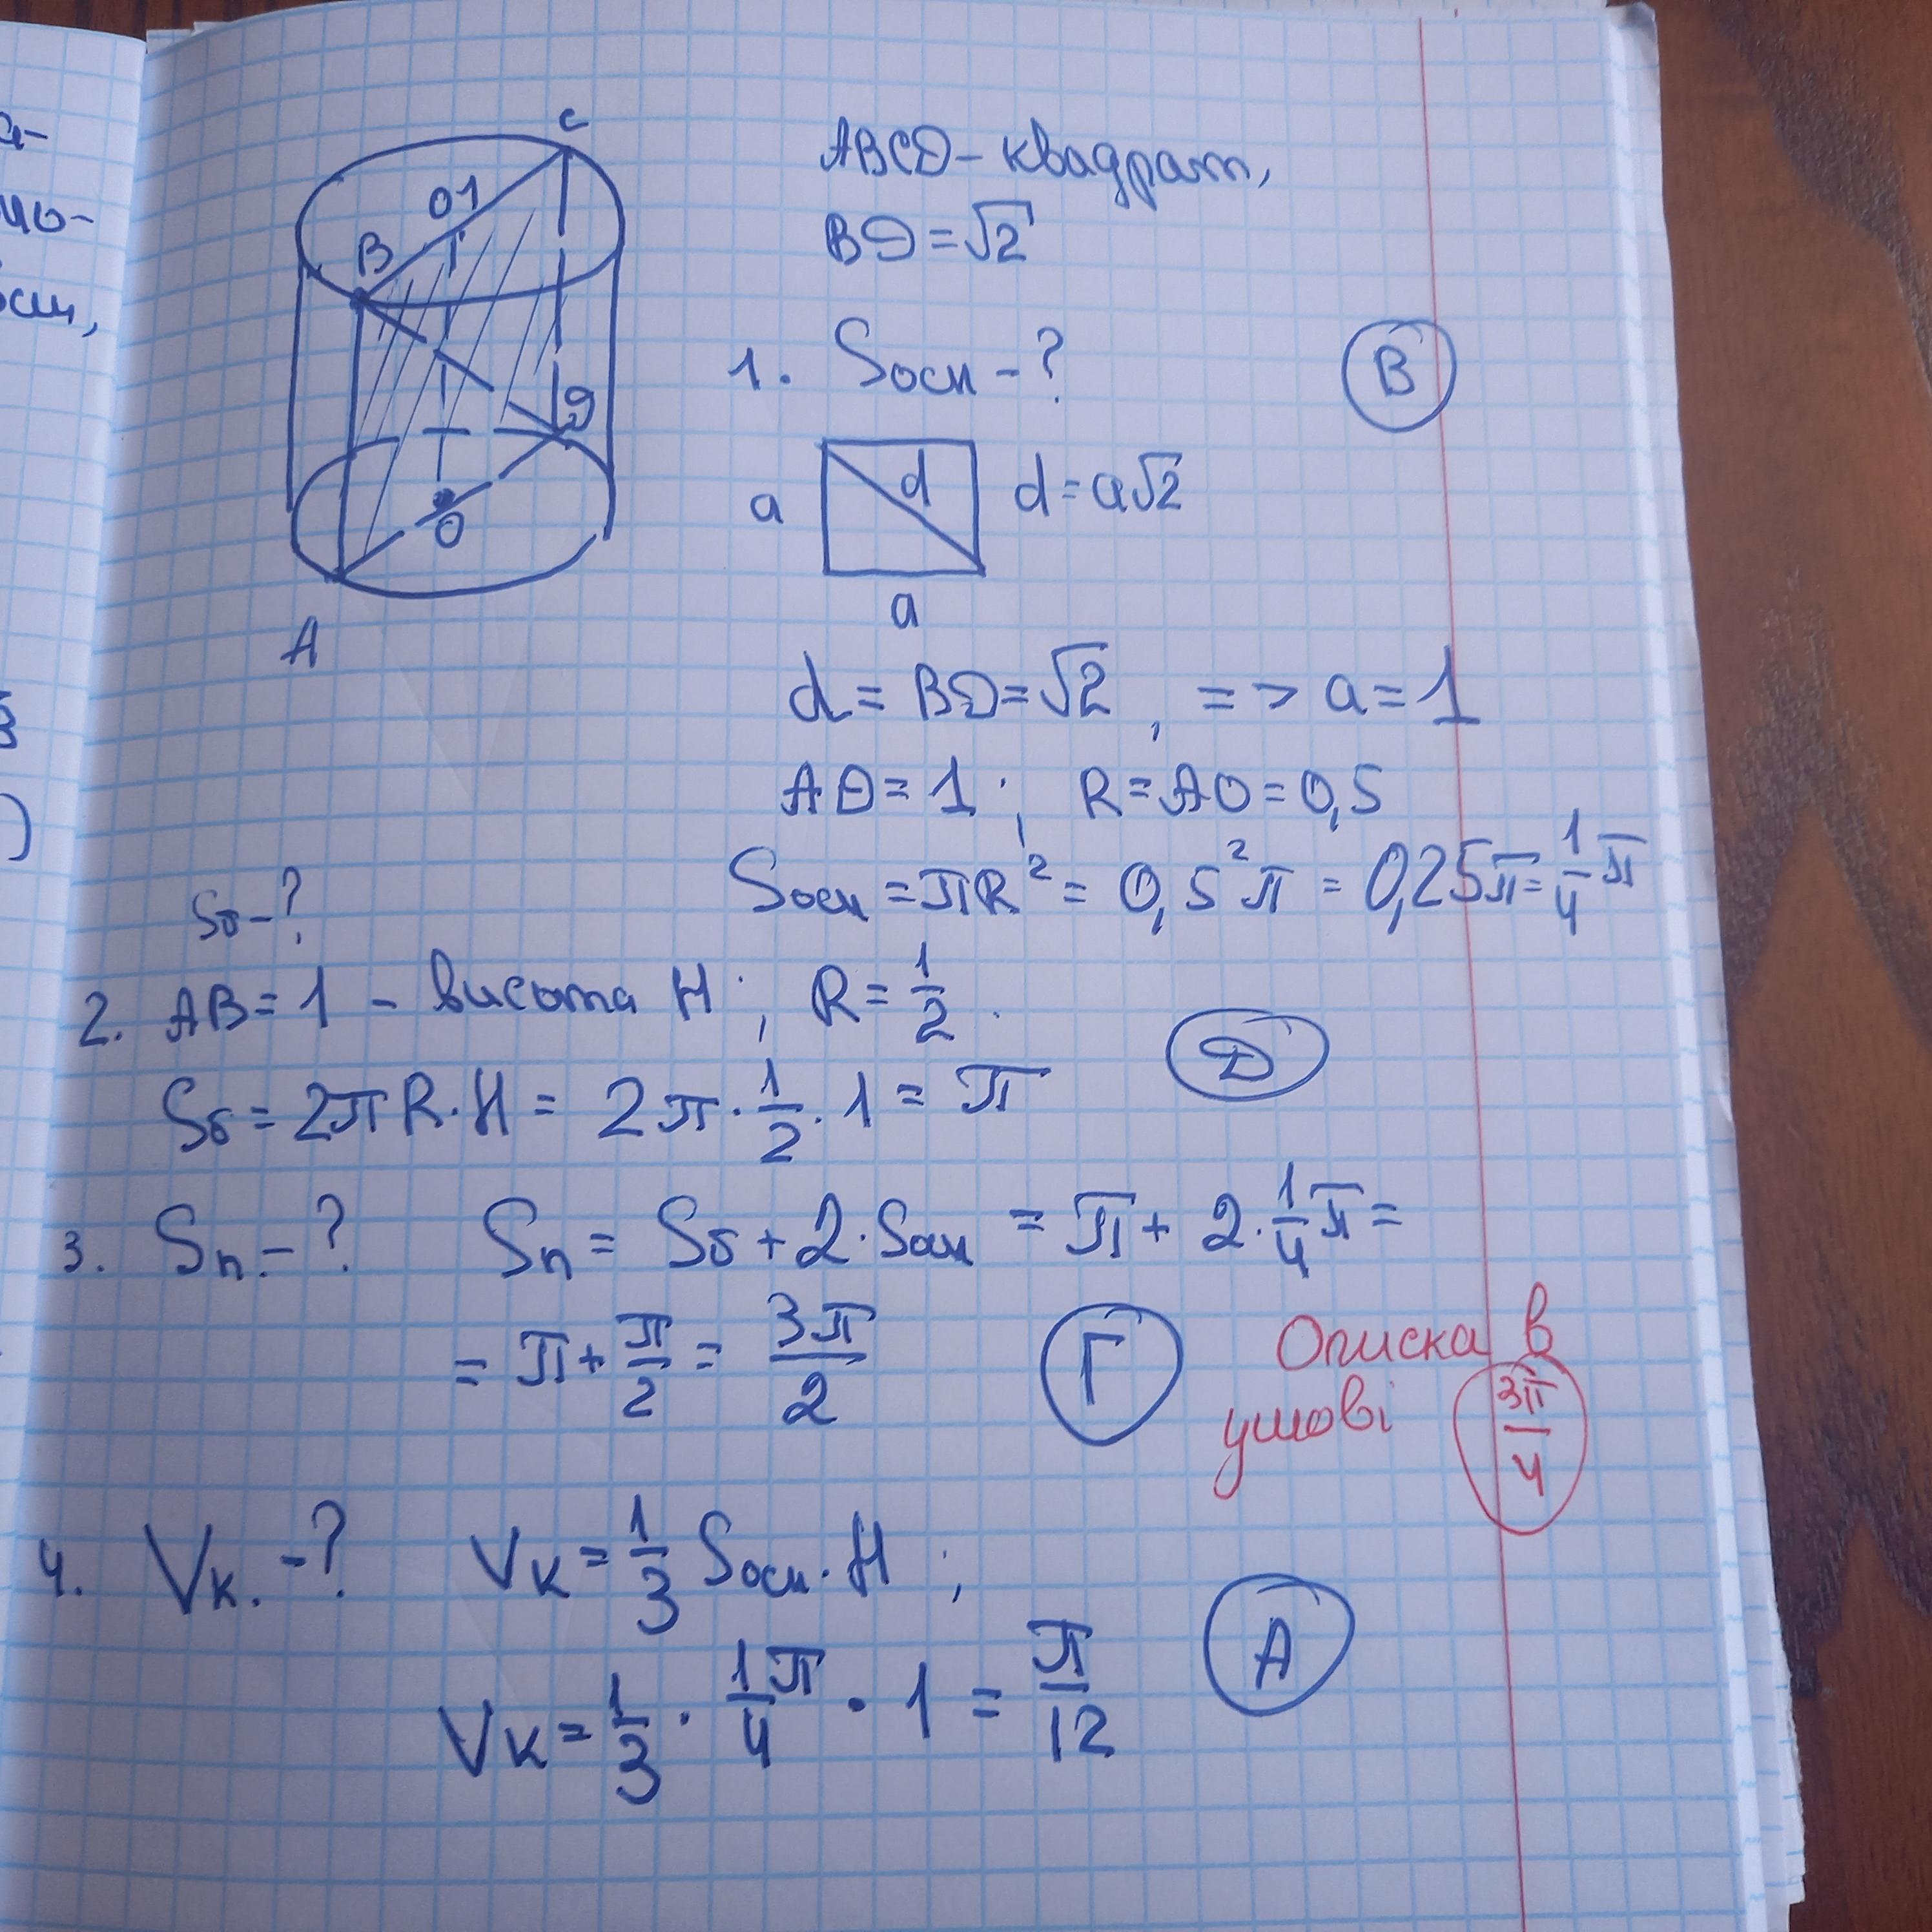 C
O1
B
D
O
A
ABCD - квадрат,
BD = √2
1. Sосн - ?
В
d
a
d = a√2
a
d = BD = √2, => a = 1
AD = 1; R = AO = 0,5
Sосн = πR² = 0,5²π = 0,25π = 1/4 π
Sб - ?
2. AB = 1 - висота H; R = 1/2.
Д
Sб = 2πR·H = 2π · 1/2 · 1 = π
3. Sп. - ? Sп = Sб + 2·Sосн = π + 2·1/4 π =
= π + π/2 = 3π/2
Г
Описка в
умові 3π/4
4. Vк. - ? Vк = 1/3 Sосн·H;
А
Vк = 1/3 · 1/4 π · 1 = π/12